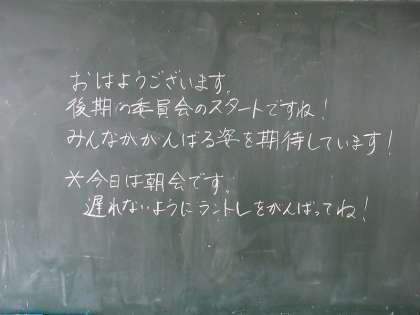 おはようございます。
後期の委員会のスタートですね!
みんなががんばる姿を期待しています!
*今日は朝会です。
遅れないようにラントレをがんばってね!